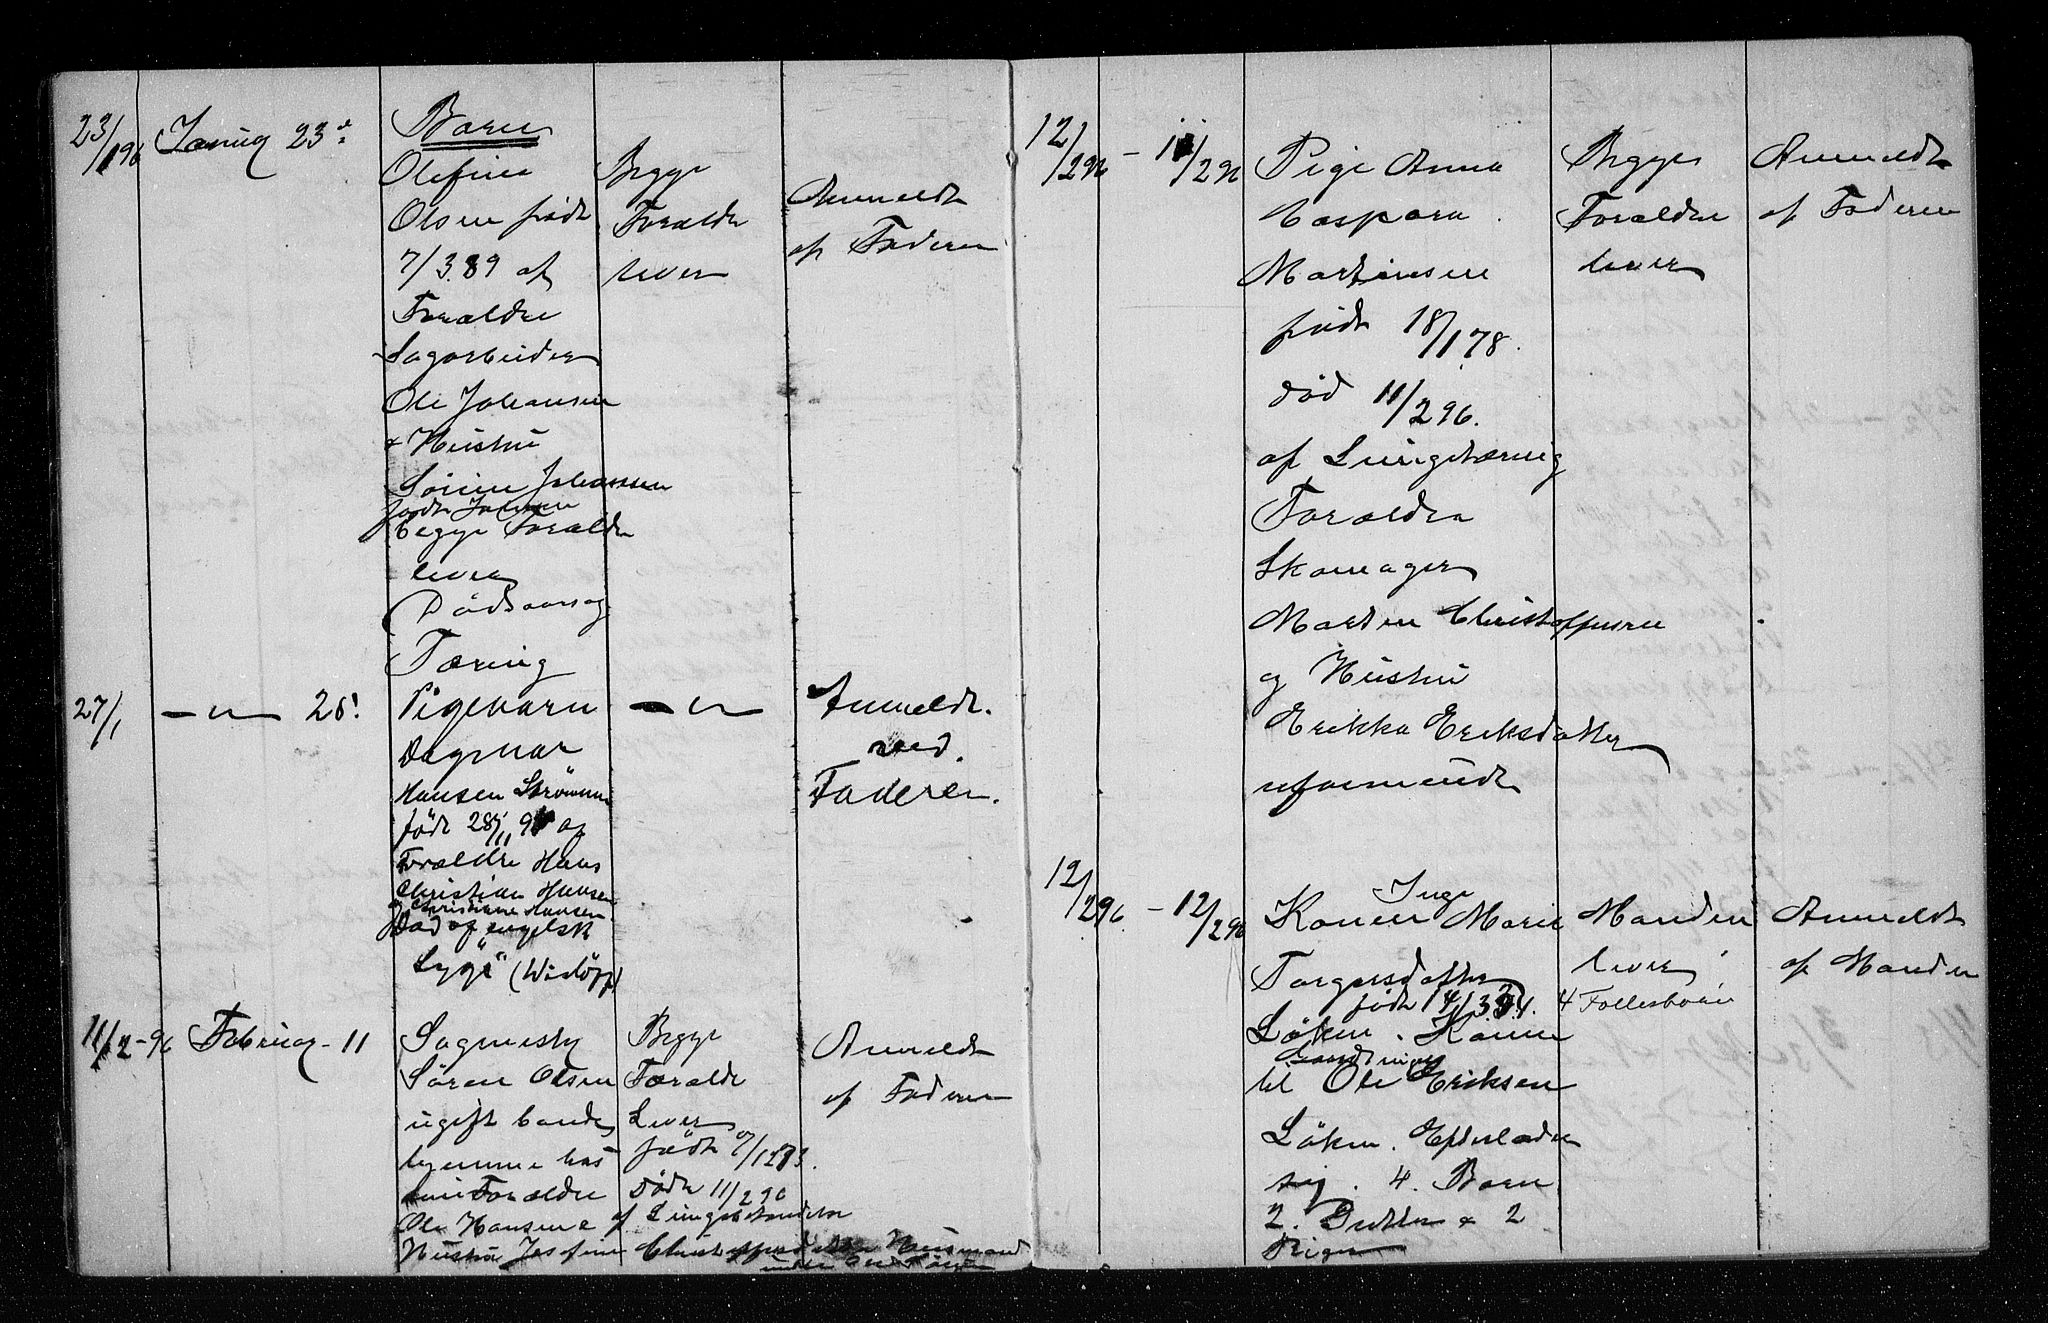 23/1 96
Januar 23de
Barn
Olefine
Olsen født
7/3 89 af
Forældre
Sagarbeider
Ole Johansen
& Hustru
Sörine Johanssen
født Johnsen
begge Forældre
lever
Dødsaarsag
Tæring
Begge
Foræld
lever
Anmeldt
af Faderen
27/1
— " — 26!
Pigebarn
Dagmar
Hansen Strömmen
født 28/11 9 af
Forældre Hans
Christian Hansen
og Christiane Hansen
Død af engelsk
Syge" (Wisløff)
— " —
Anmeldt.
ved.
Faderen.
11/2 - 96
Februar - 11
Sagmester
Sören Olsen
ugift boende
hjemme hos
sine Forældre
Ole Hansen &
Hustru Josefine Christoffersdatter Husmand
under
Begge
Foræld
Lever
født 9/12 73.
Døde 11/2 96
af Lungebetændelse
Anmeldt
af Faderen
12/2 96 - 11/2 96
Pige Anna
Caspara
Martinsen
født 18/1 78.
død 11/2 96.
af Lungetæring
Forældre
Skomager
Martin Christoffersen
og Hustru
Erikka Eriksdatter
uformuende
Begge
Forældre
lever
Anmeldt
af Faderen
12/2 96 - 12/2 96
Inge
Konen Marie
Torgersdatter
født 14/3 54.
Löken. Kone
Gaardmand
til Ole Eriksen
Löken. Efterlader
sig. 4. Børn
2. Gutter & 2
Piger
Manden
lever
4 Fællesbørn
Anmeldt
af Manden